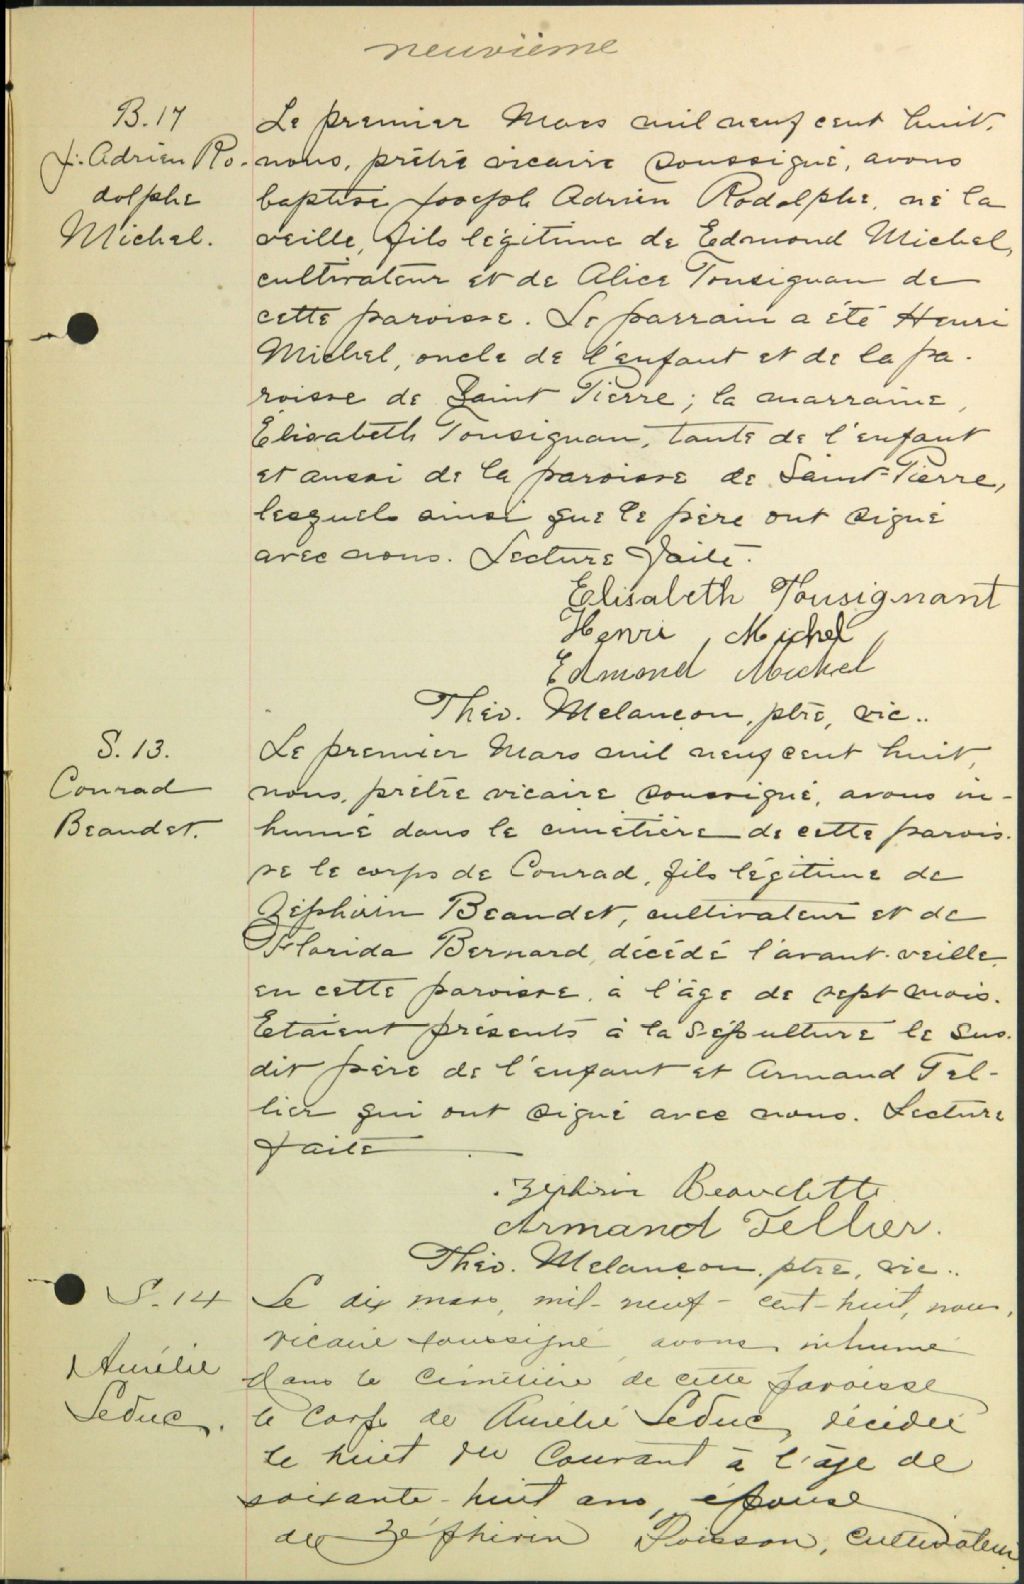 neuvième
B. 17
J. Adrien Ro-
dolphe
Michel.
Le premier Mars mil neuf cent huit,
nous, prêtre vicaire soussigné, avons
baptisé Joseph Adrien Rodolphe, né la
veille, fils légitime de Edmond Michel,
cultivateur et de Alice Tousignan de
cette paroisse. Le parrain a été Henri
Michel, oncle de l'enfant et de la pa-
roisse de Saint Pierre; la marraine,
Élisabeth Tousignan, tante de l'enfant
et aussi de la paroisse de Saint-Pierre,
lesquels ainsi que le père ont signé
avec nous. Lecture faite.
Elisabeth Tousignant
Henri Michel
Edmond Michel
Théo. Melançon, ptre, vic..
S. 13.
Conrad
Beaudet.
Le premier Mars mil neuf cent huit,
nous, prêtre vicaire soussigné, avons in-
humé dans le cimetière de cette parois-
se le corps de Conrad, fils légitime de
Zéphirin Beaudet, cultivateur et de
Florida Bernard, décédé l'avant-veille
en cette paroisse, à l'âge de sept mois.
Etaient présents à la sépulture le sus-
dit père de l'enfant et Armand Tel-
lier qui ont signé avec nous. Lecture
faite
Zephirin Beaudette
Armand Tellier.
Théo. Melançon, ptre, vic..
S. 14
Aurélie
Leduc.
Le dix mars, mil-neuf-cent-huit, nous,
vicaire soussigné, avons inhumé
dans le cimetière de cette paroisse
le corps de Aurélie Leduc, décédée
le huit du courant à l'âge de
soixante-huit ans, épouse
de Zéphirin Poisson, cultivateur